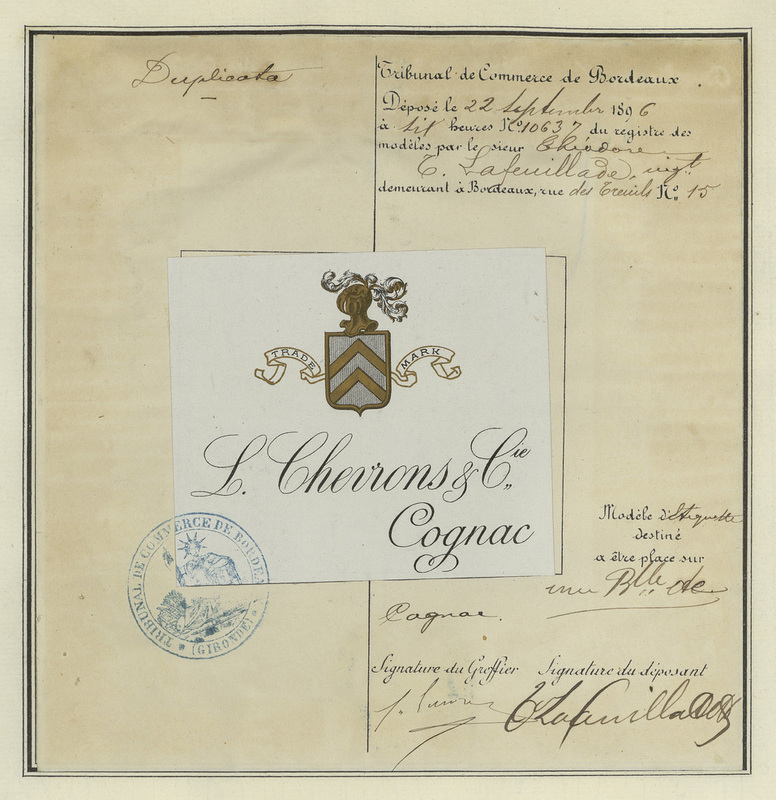 Duplicata
Tribunal de Commerce de Bordeaux
Déposé le 22 Septembre 1896
à six heures N° 10637 du registre des
modèles par le sieur Théodore
T. Lafeuillade, nég.t
demeurant à Bordeaux, rue des Treuils N° 15
TRADE MARK
L. Chevrons & Cie
Cognac
Modèle d'étiquette
destiné
a être place sur
une Blle de
Cognac.
TRIBUNAL DE COMMERCE DE BORDEAUX
(GIRONDE)
Signature du Greffier Signature du déposant
T Lafeuillade